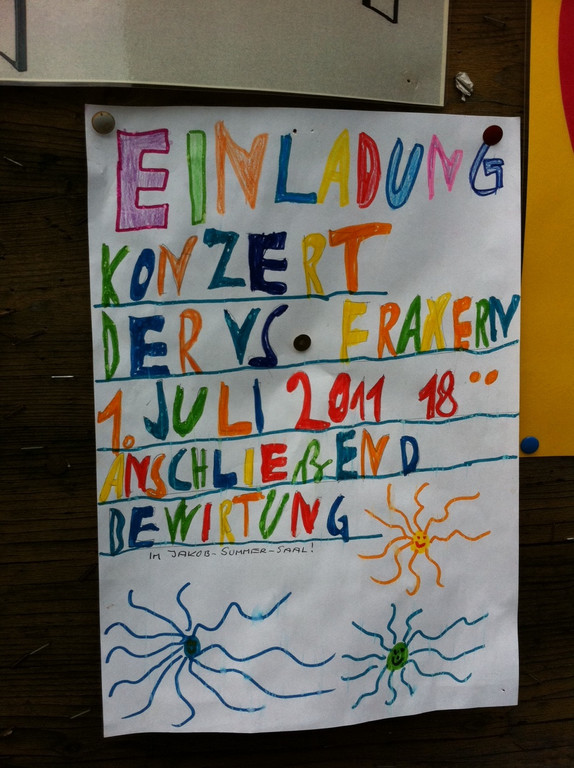 EINLADUNG
KONZERT
DER VS FRAXERN
1. JULI 2011 18°°
ANSCHLIEßEND
BEWIRTUNG
IM JAKOB-SUMMER-SAAL!